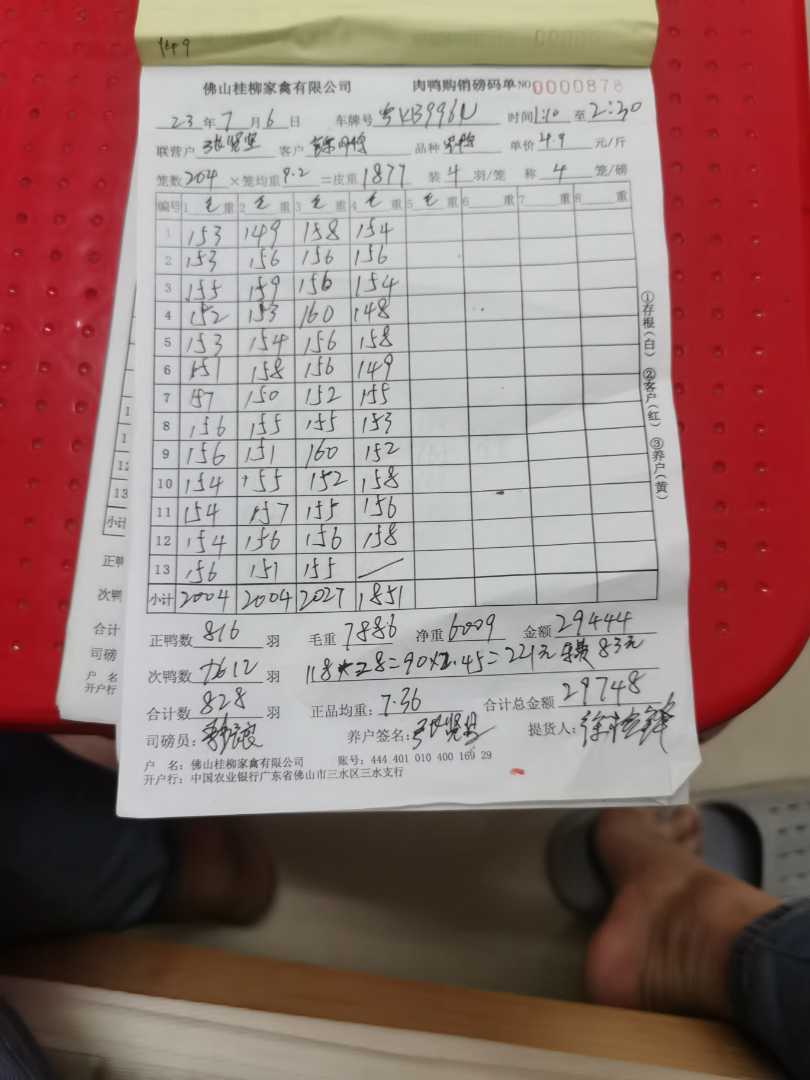 149
佛山桂柳家禽有限公司 肉鸭购销磅码单 NO 0000878
23 年 7 月 6 日 车牌号 粤 时间 1:10 至 2:30
联营户 客户 品种 单价 4.9 元/斤
笼数 204 ×笼均重 9.2 =皮重 1877 装 4 羽/笼 称 4 笼/磅
编号 1 毛 重 2 毛 重 3 毛 重 4 毛 重 5 毛 重 6 重 7 重 8 重
1 153 149 158 154
2 153 156 156 156
3 155 159 156 154
4 152 153 160 148
5 153 154 156 158
6 151 158 156 149
7 157 150 152 155
8 156 155 155 153
9 156 151 160 152
10 154 155 152 158
11 154 157 155 156
12 154 156 156 158
13 156 151 155 /
小计 2004 2004 2027 1851
①存根(白) ②客户(红) ③养户(黄)
正鸭数 816 羽 毛重 7886 净重 6009 金额 29444
次鸭数 12 羽 118*28=90×2.45=221元 83元
合计数 828 羽 正品均重: 7.36 合计总金额 29748
司磅员: 养户签名: 提货人:
户 名: 佛山桂柳家禽有限公司 账号: 444 401 010 400 169 29
开户行: 中国农业银行广东省佛山市三水区三水支行
1
1
1
12
13
小计
正鸭
次鸭
合计
司磅
户 名
开户行